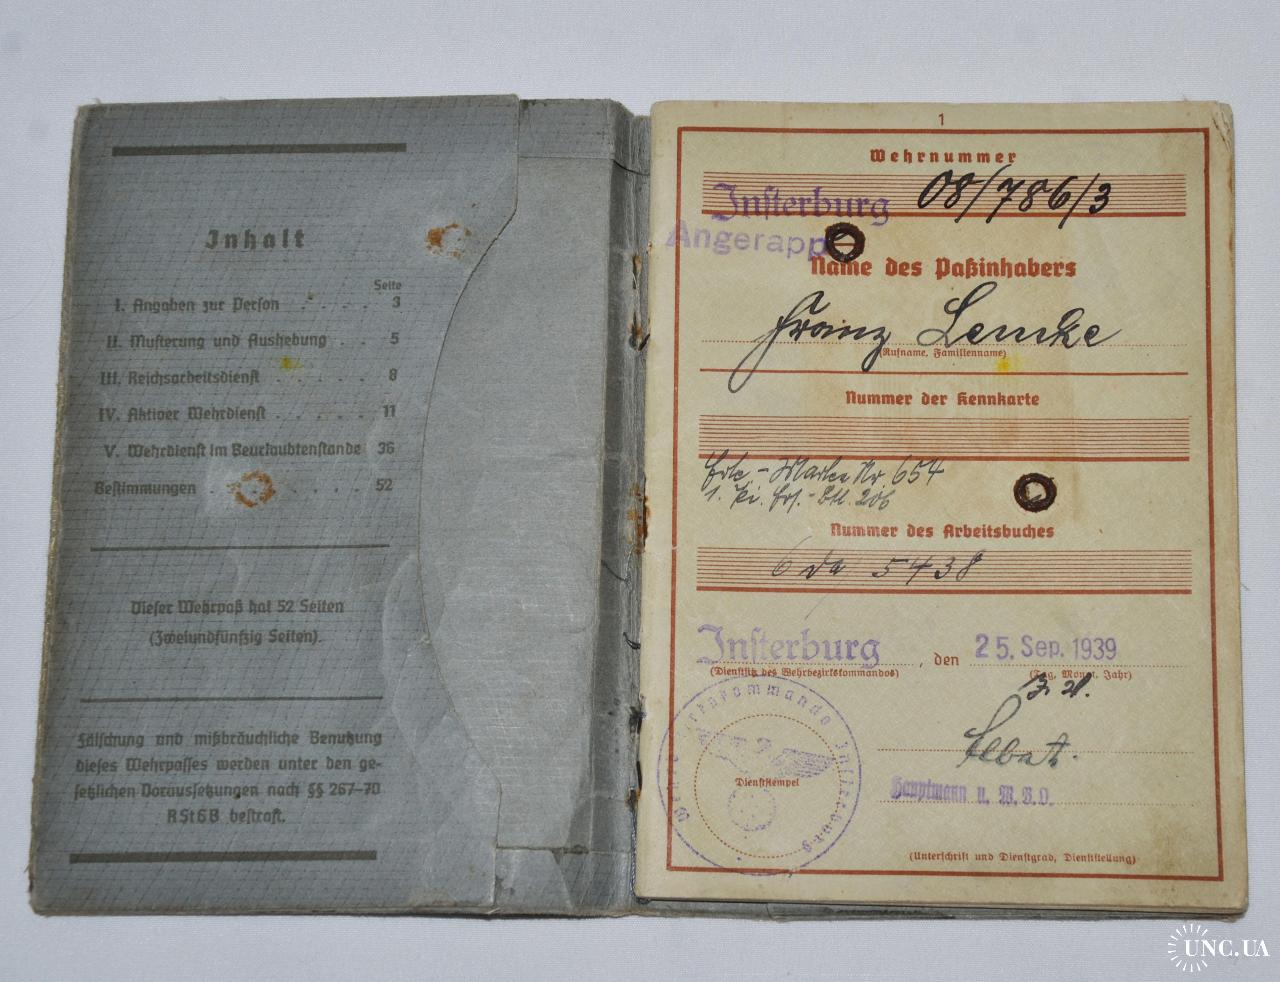 Inhalt
Seite
I. Angaben zur Person . . . . . 3
II. Musterung und Aushebung . . 5
III. Reichsarbeitsdienst . . . . . . 8
IV. Aktiver Wehrdienst . . . . . . 11
V. Wehrdienst im Beurlaubtenstande 36
Bestimmungen . . . . . . . . 52
Dieser Wehrpaß hat 52 Seiten
(Zweiundfünfzig Seiten).
Fälschung und mißbräuchliche Benutzung
dieses Wehrpasses werden unter den ge-
setzlichen Voraussetzungen nach §§ 267-70
RStGB bestraft.
1
Wehrnummer
Insterburg 08/786/3
Angerapp
Name des Paßinhabers
Franz Lemke
(Rufname, Familienname)
Nummer der Kennkarte
Erk.-Marke Nr. 654
1. Pi. Ers.-Btl. 206
Nummer des Arbeitsbuches
5438
Insterburg, den 25. Sep. 1939
(Dienstsitz des Wehrbezirkskommandos) (Tag, Monat, Jahr)
Dienststempel
Hauptmann u. W.B.O.
(Unterschrift und Dienstgrad, Dienststellung)
UNC.UA